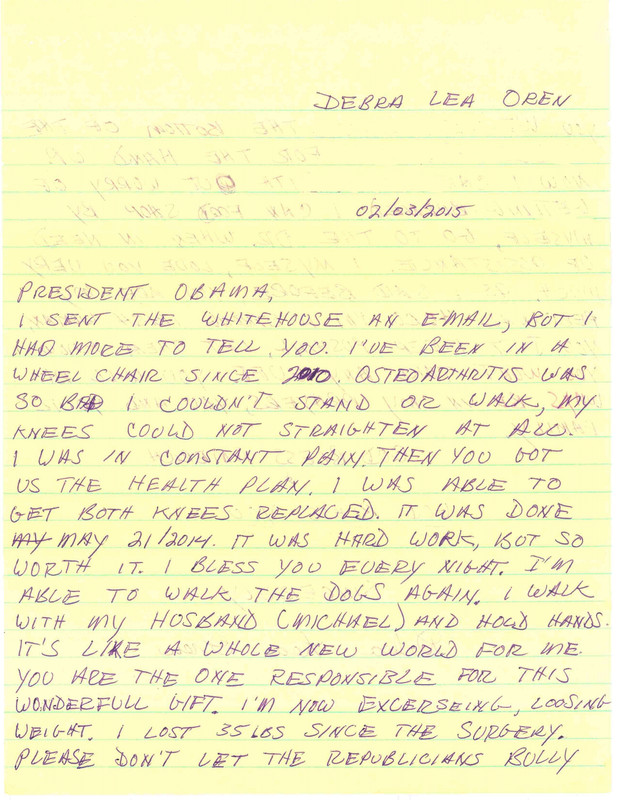 DEBRA LEA OREN
02/03/2015
PRESIDENT OBAMA,
I SENT THE WHITEHOUSE AN E-MAIL, BUT I
HAD MORE TO TELL YOU. I'VE BEEN IN A
WHEEL CHAIR SINCE 2010. OSTEOARTHRITIS WAS
SO BAD I COULDN'T STAND OR WALK, MY
KNEES COULD NOT STRAIGHTEN AT ALL.
I WAS IN CONSTANT PAIN. THEN YOU GOT
US THE HEALTH PLAN. I WAS ABLE TO
GET BOTH KNEES REPLACED. IT WAS DONE
MY MAY 21/2014. IT WAS HARD WORK, BUT SO
WORTH IT. I BLESS YOU EVERY NIGHT. I'M
ABLE TO WALK THE DOGS AGAIN. I WALK
WITH MY HOSBAND (MICHAEL) AND HOLD HANDS.
IT'S LIKE A WHOLE NEW WORLD FOR ME.
YOU ARE THE ONE RESPONSIBLE FOR THIS
WONDERFULL GIFT. I'M NOW EXCERSEING, LOOSING
WEIGHT. I LOST 35 LBS SINCE THE SURGERY.
PLEASE DON'T LET THE REPUBLICIANS BULLY